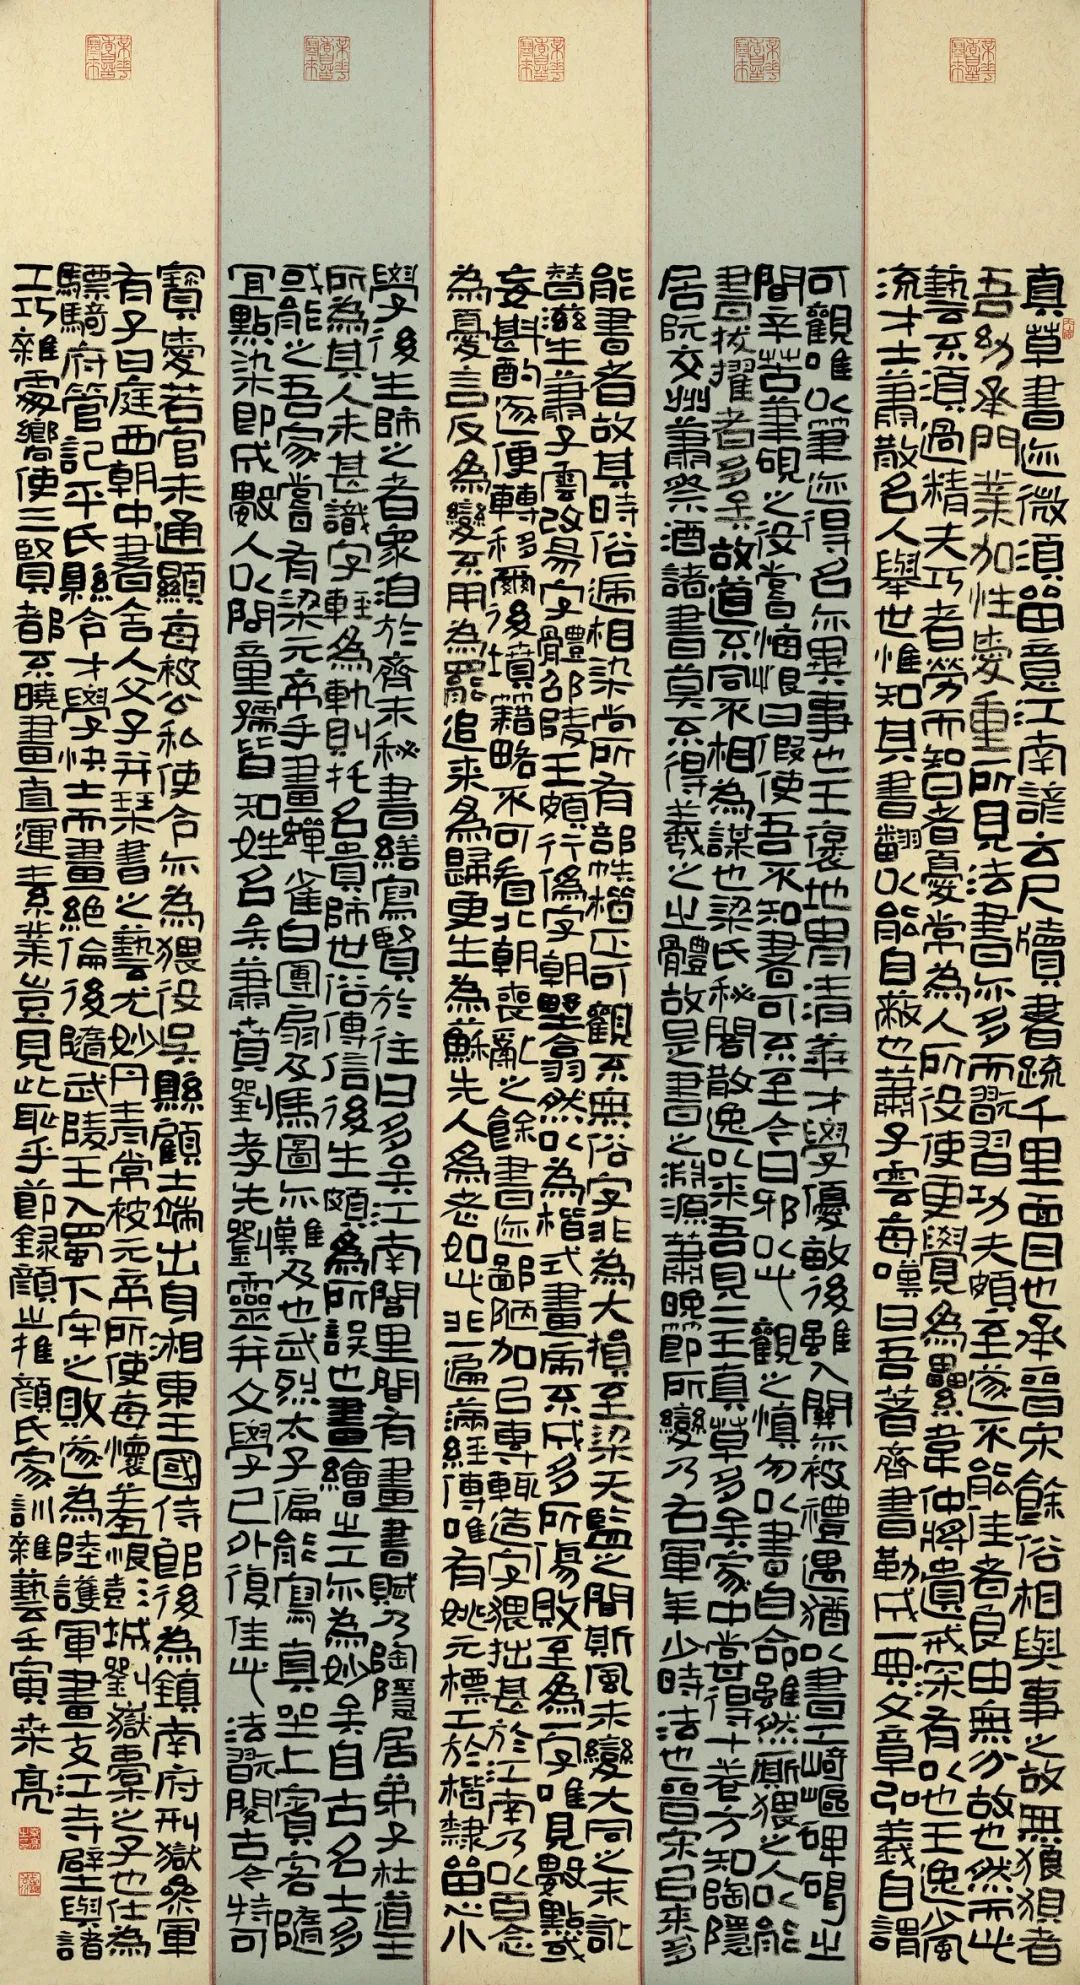 真草書迹微須留意江南諺云尺牘書疏千里面目也承晉宋餘俗相與事之故無狼狽者
吾幼承門業加性愛重所見法書亦多而翫習功夫頗至遂不能佳者良由無分故也然而此
藝不須過精夫巧者勞而智者憂常為人所役使更覺為累韋仲將遺戒深有以也王逸少風
流才士蕭散名人舉世惟知其書翻以能自蔽也蕭子雲每嘆曰吾著齊書勒成一典文章弘義自謂
可觀唯以筆迹得名亦異事也王褒地冑清華才學優敏後雖入關亦被禮遇猶以書工崎嶇碑碣之
間辛苦筆硯之役嘗悔恨曰假使吾不知書可不至今日邪以此觀之慎勿以書自命雖然廝猥之人以能
書拔擢者多矣故道不同不相為謀也梁氏秘閣散逸以來吾見二王真草多矣家中嘗得十卷方知陶隱
居阮交州蕭祭酒諸書莫不得羲之之體故是書之淵源蕭晚節所變乃右軍年少時法也晉宋已來多
能書者故其時俗遞相染尚所有部帙楷正可觀不無俗字非為大損至梁天監之間斯風未變大同之末訛
替滋生蕭子雲改易字體邵陵王頗行偽字朝野翕然以為楷式畫虎不成多所傷敗至為一字唯見數點或
妄斟酌逐便轉移爾後墳籍略不可看北朝喪亂之餘書迹鄙陋加以專輒造字猥拙甚於江南乃以百念
為憂言反為變不用為罷追來為歸更生為蘇先人為老如此非一遍滿經傳唯有姚元標工於楷隸留心小
學後生師之者衆洎於齊末秘書繕寫賢於往日多矣江南閭里間有畫書賦乃陶隱居弟子杜道士
所為其人未甚識字輕為軌則托名貴師世俗傳信後生頗為所誤也畫繪之工亦為妙矣自古名士多
或能之吾家嘗有梁元帝手畫蟬雀白團扇及馬圖亦難及也武烈太子偏能寫真坐上賓客隨
宜點染即成數人以問童孺皆知姓名矣蕭賁劉孝先劉靈并文學已外復佳此法翫閱古今特可
寶愛若官未通顯每被公私使令亦為猥役吳縣顧士端出身湘東王國侍郎後為鎮南府刑獄參軍
有子曰庭西朝中書舍人父子并琴書之藝尤妙丹青常被元帝所使每懷羞恨彭城劉嶽橐之子也仕為
驃騎府管記平氏縣令才學快士而畫絕倫後隨武陵王入蜀下牢之敗遂為陸護軍畫支江寺壁與諸
工巧雜處嚮使三賢都不曉畫直運素業豈見此恥乎節録顏之推顏氏家訓雜藝壬寅榮亮